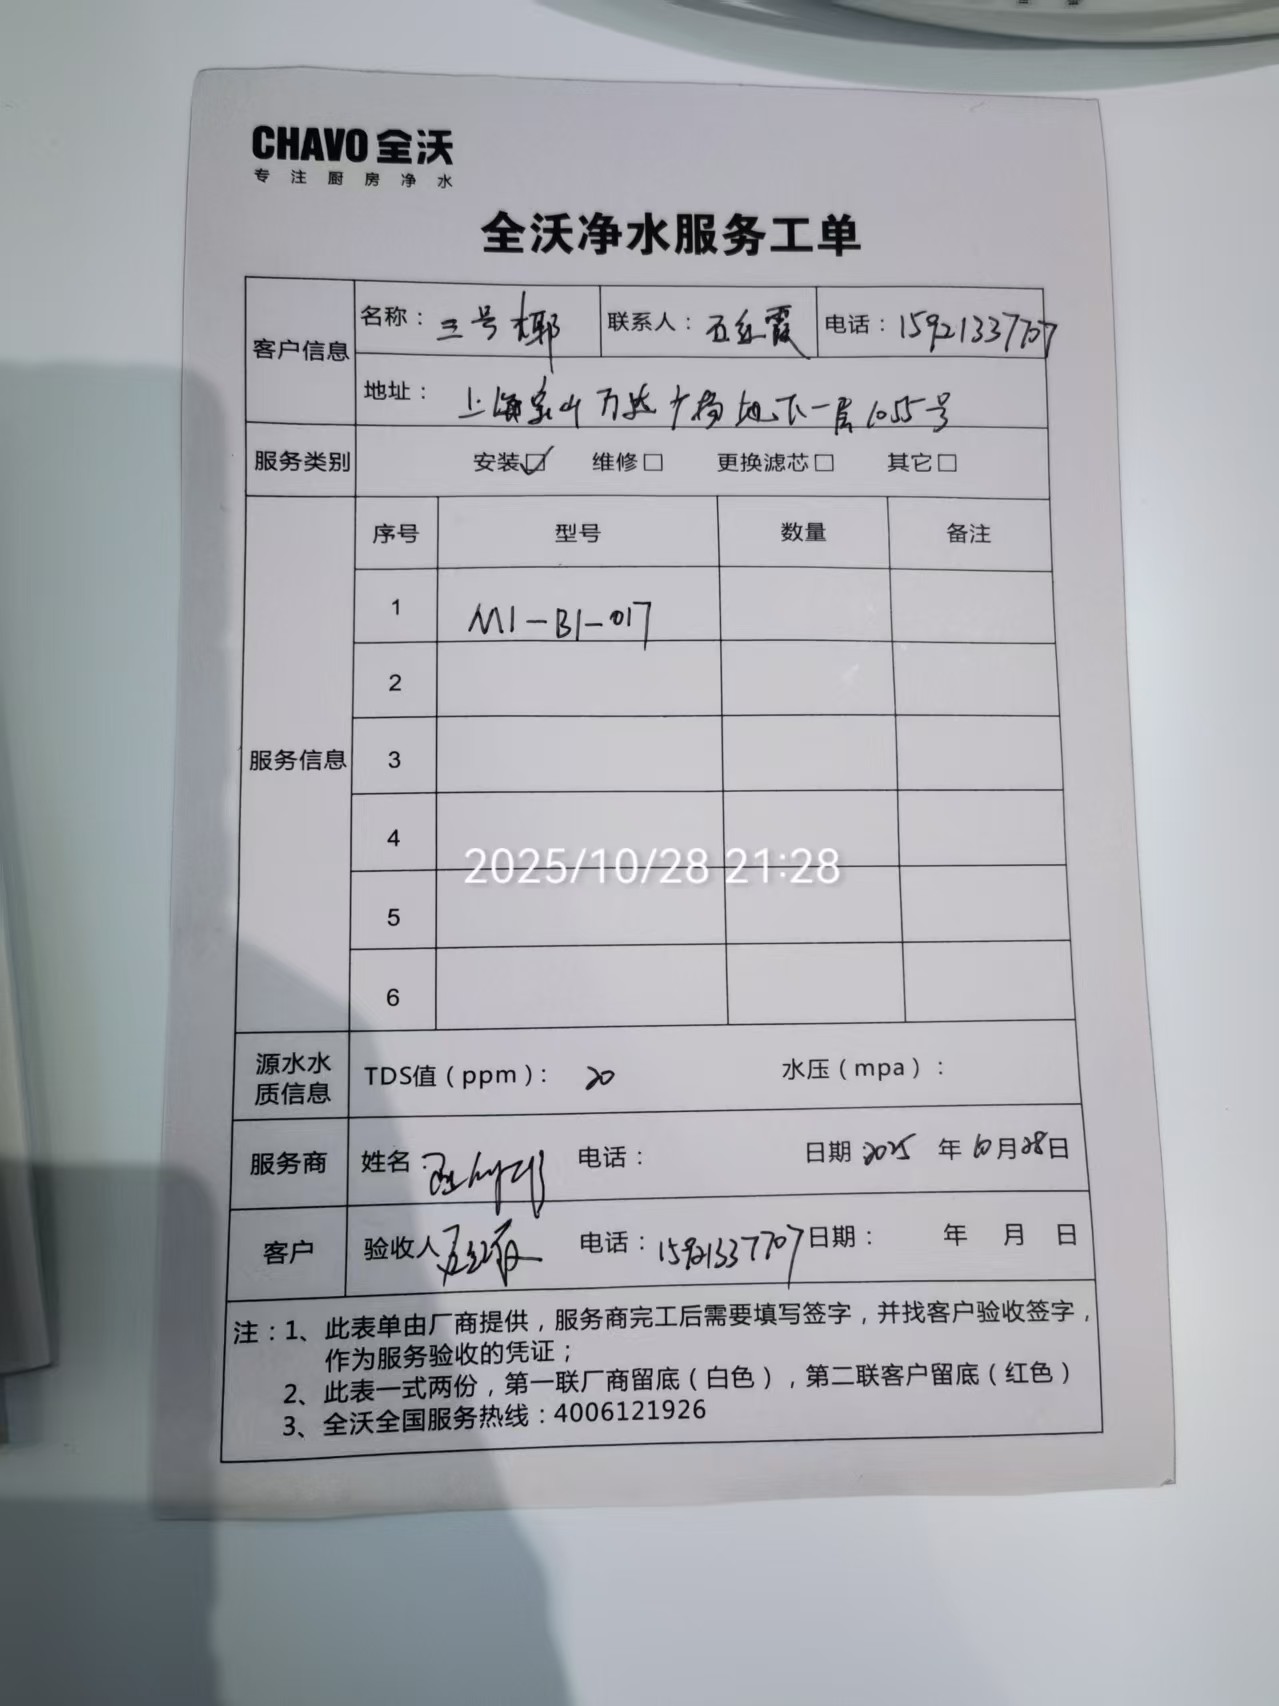 CHAVO 全沃
专注厨房净水
全沃净水服务工单
客户信息
名称：三号椰 联系人：五红霞 电话：15921337707
地址：上海宝山万达广场地下一层1055号
服务类别 安装☑ 维修□ 更换滤芯□ 其它□
服务信息
序号 型号 数量 备注
1 M1-B1-017
2
3
4
2025/10/28 21:28
5
6
源水水质信息 TDS值（ppm）：20 水压（mpa）：
服务商 姓名： 电话： 日期 2025 年 10 月 28 日
客户 验收人 电话：15921337707 日期： 年 月 日
注：1、此表单由厂商提供，服务商完工后需要填写签字，并找客户验收签字，
作为服务验收的凭证；
2、此表一式两份，第一联厂商留底（白色），第二联客户留底（红色）
3、全沃全国服务热线：4006121926